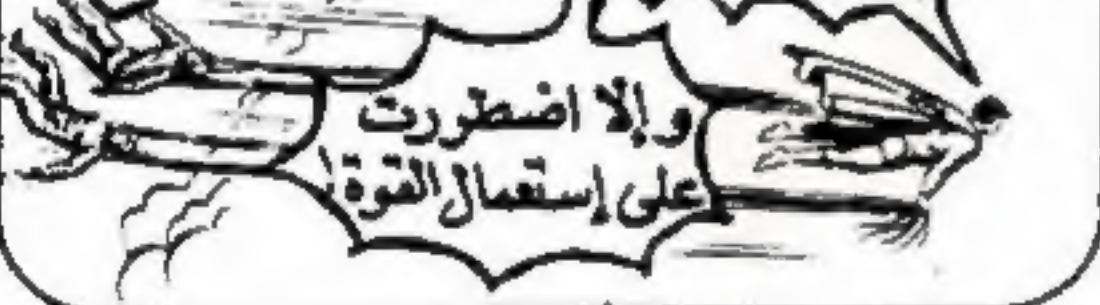 وإلا اضطررت
على إستعمال القوة!